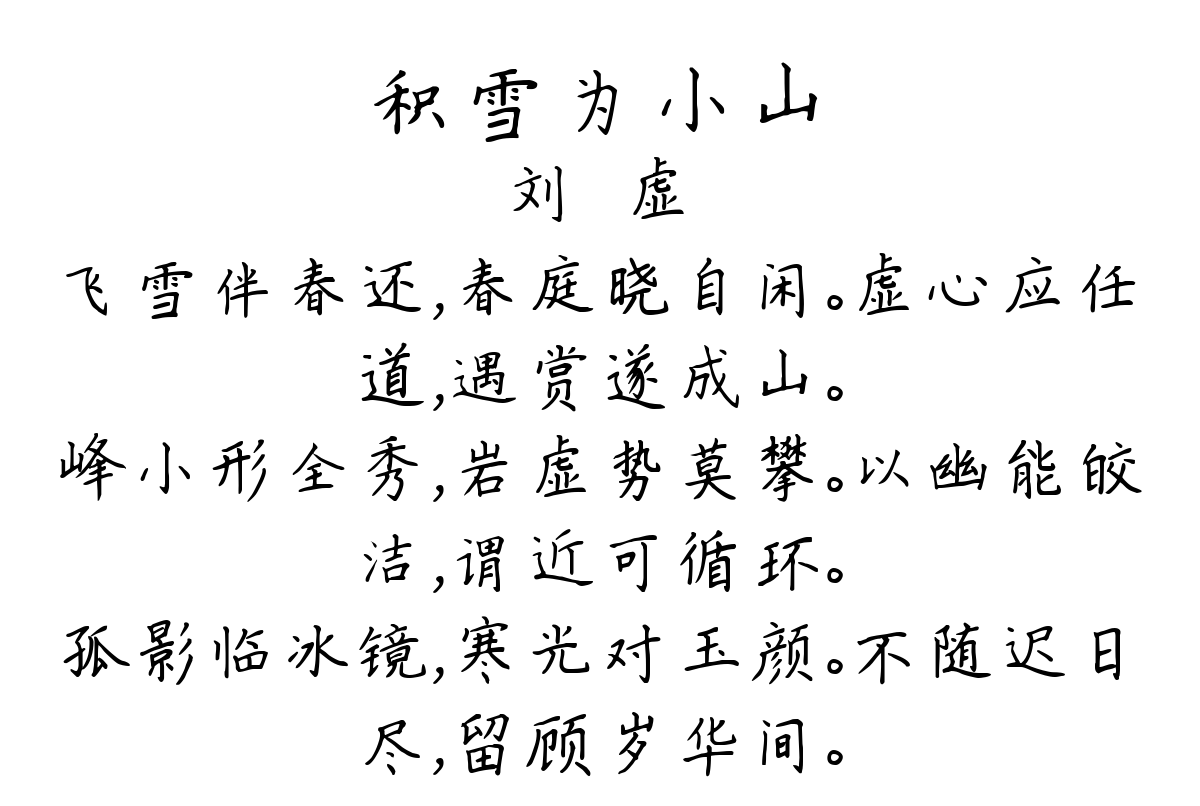 积雪为小山
刘 虚
飞雪伴春还,春庭晓自闲。虚心应任
道,遇赏遂成山。
峰小形全秀,岩虚势莫攀。以幽能皎
洁,谓近可循环。
孤影临冰镜,寒光对玉颜。不随迟日
尽,留顾岁华间。